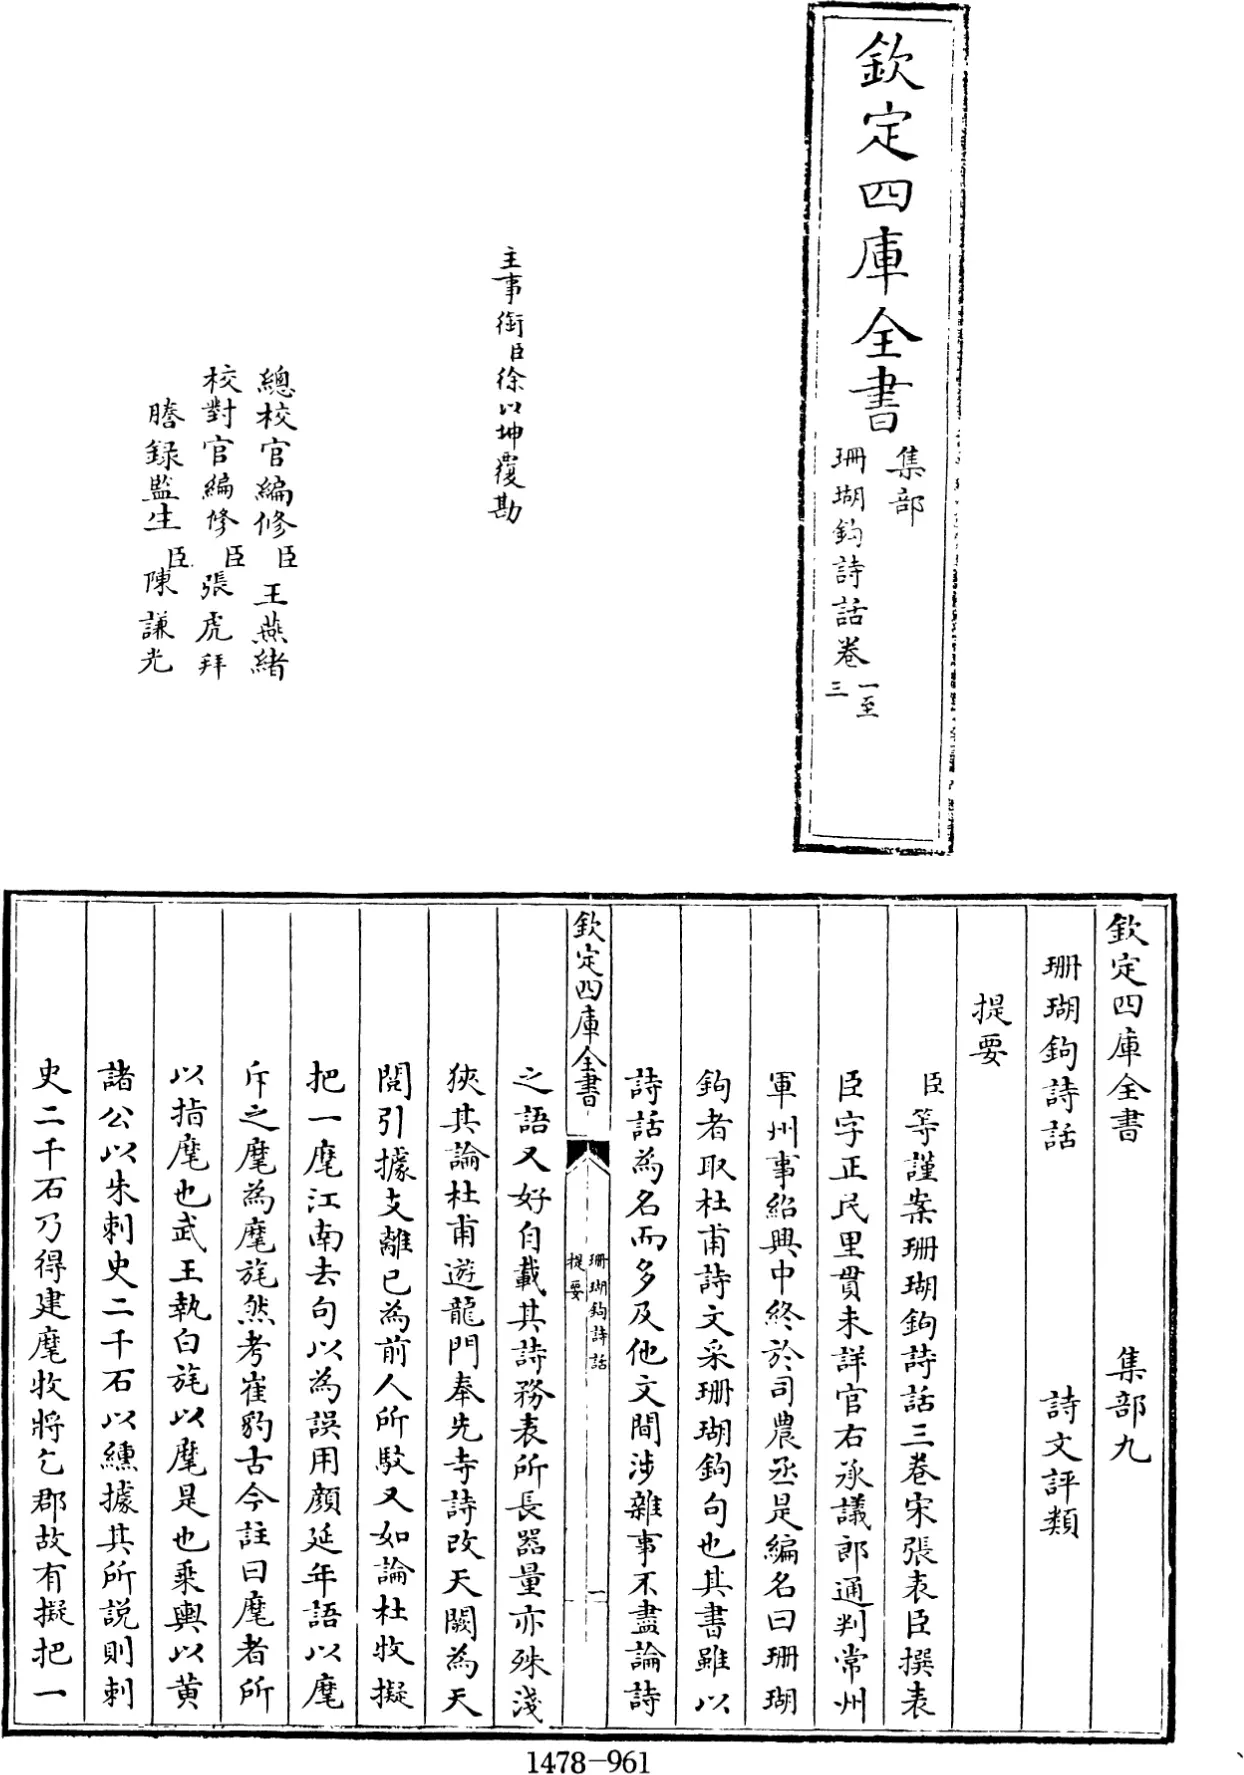 欽定四庫全書
集部
珊瑚鈎詩話卷一至三
主事銜臣徐以坤覆勘
總校官編修臣王燕緒
校對官編修臣張虎拜
謄録監生臣陳謙光
欽定四庫全書 集部九
珊瑚鈎詩話 詩文評類
提要
臣等謹案珊瑚鈎詩話三卷宋張表臣撰表
臣字正民里貫未詳官右承議郎通判常州
軍州事紹興中終於司農丞是編名曰珊瑚
鈎者取杜甫詩文采珊瑚鈎句也其書雖以
詩話為名而多及他文間涉雜事不盡論詩
欽定四庫全書
珊瑚鈎詩話
提要
一
之語又好自載其詩務表所長器量亦殊淺
狹其論杜甫遊龍門奉先寺詩改天闕為天
閱引據支離已為前人所駁又如論杜牧擬
把一麾江南去句以為誤用顔延年語以麾
斥之麾為麾旄然考崔豹古今註曰麾者所
以指麾也武王執白旄以麾是也乘輿以黄
諸公以朱刺史二千石以纁據其所説則刺
史二千石乃得建麾牧將乞郡故有擬把一
1478-961